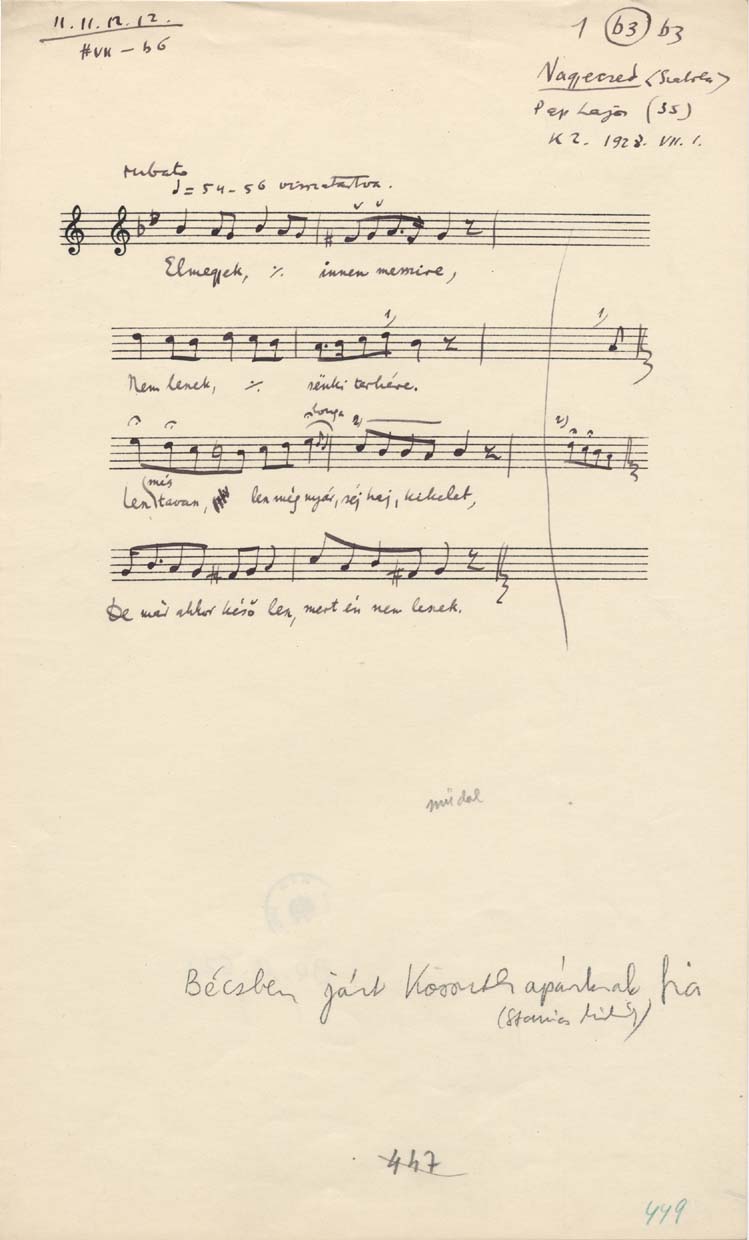 11. 11. 12. 12.
#VII – b6
1 (b3) b3
Nagyecsed (Szatmár)
Pap Lajos (35)
KZ. 1928. VII. 1.
rubato
♩= 54-56 visszatartva.
Elmegyek, ·/. innen messzire,
1) 1)
Nem leszek, ·/. sënki terhére.
2) 2)
(més
Len tavan, len még nyár, séj haj, kikelet,
De már akkor késő len, mert én nem leszek.
műdal
Bécsben járt Kossuth apánknak fia
447
449